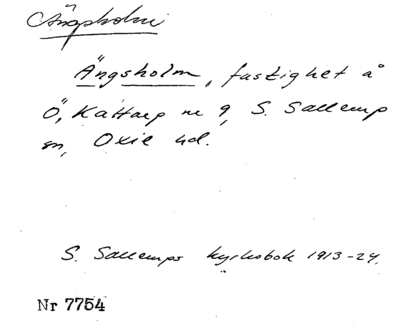 Ängsholm
Ängsholm, fastighet å
Ö, Kattarp nr 9, S. Sallerup
sn, Oxie hd.
S. Sallerups kyrkobok 1913-24.
Nr 7754